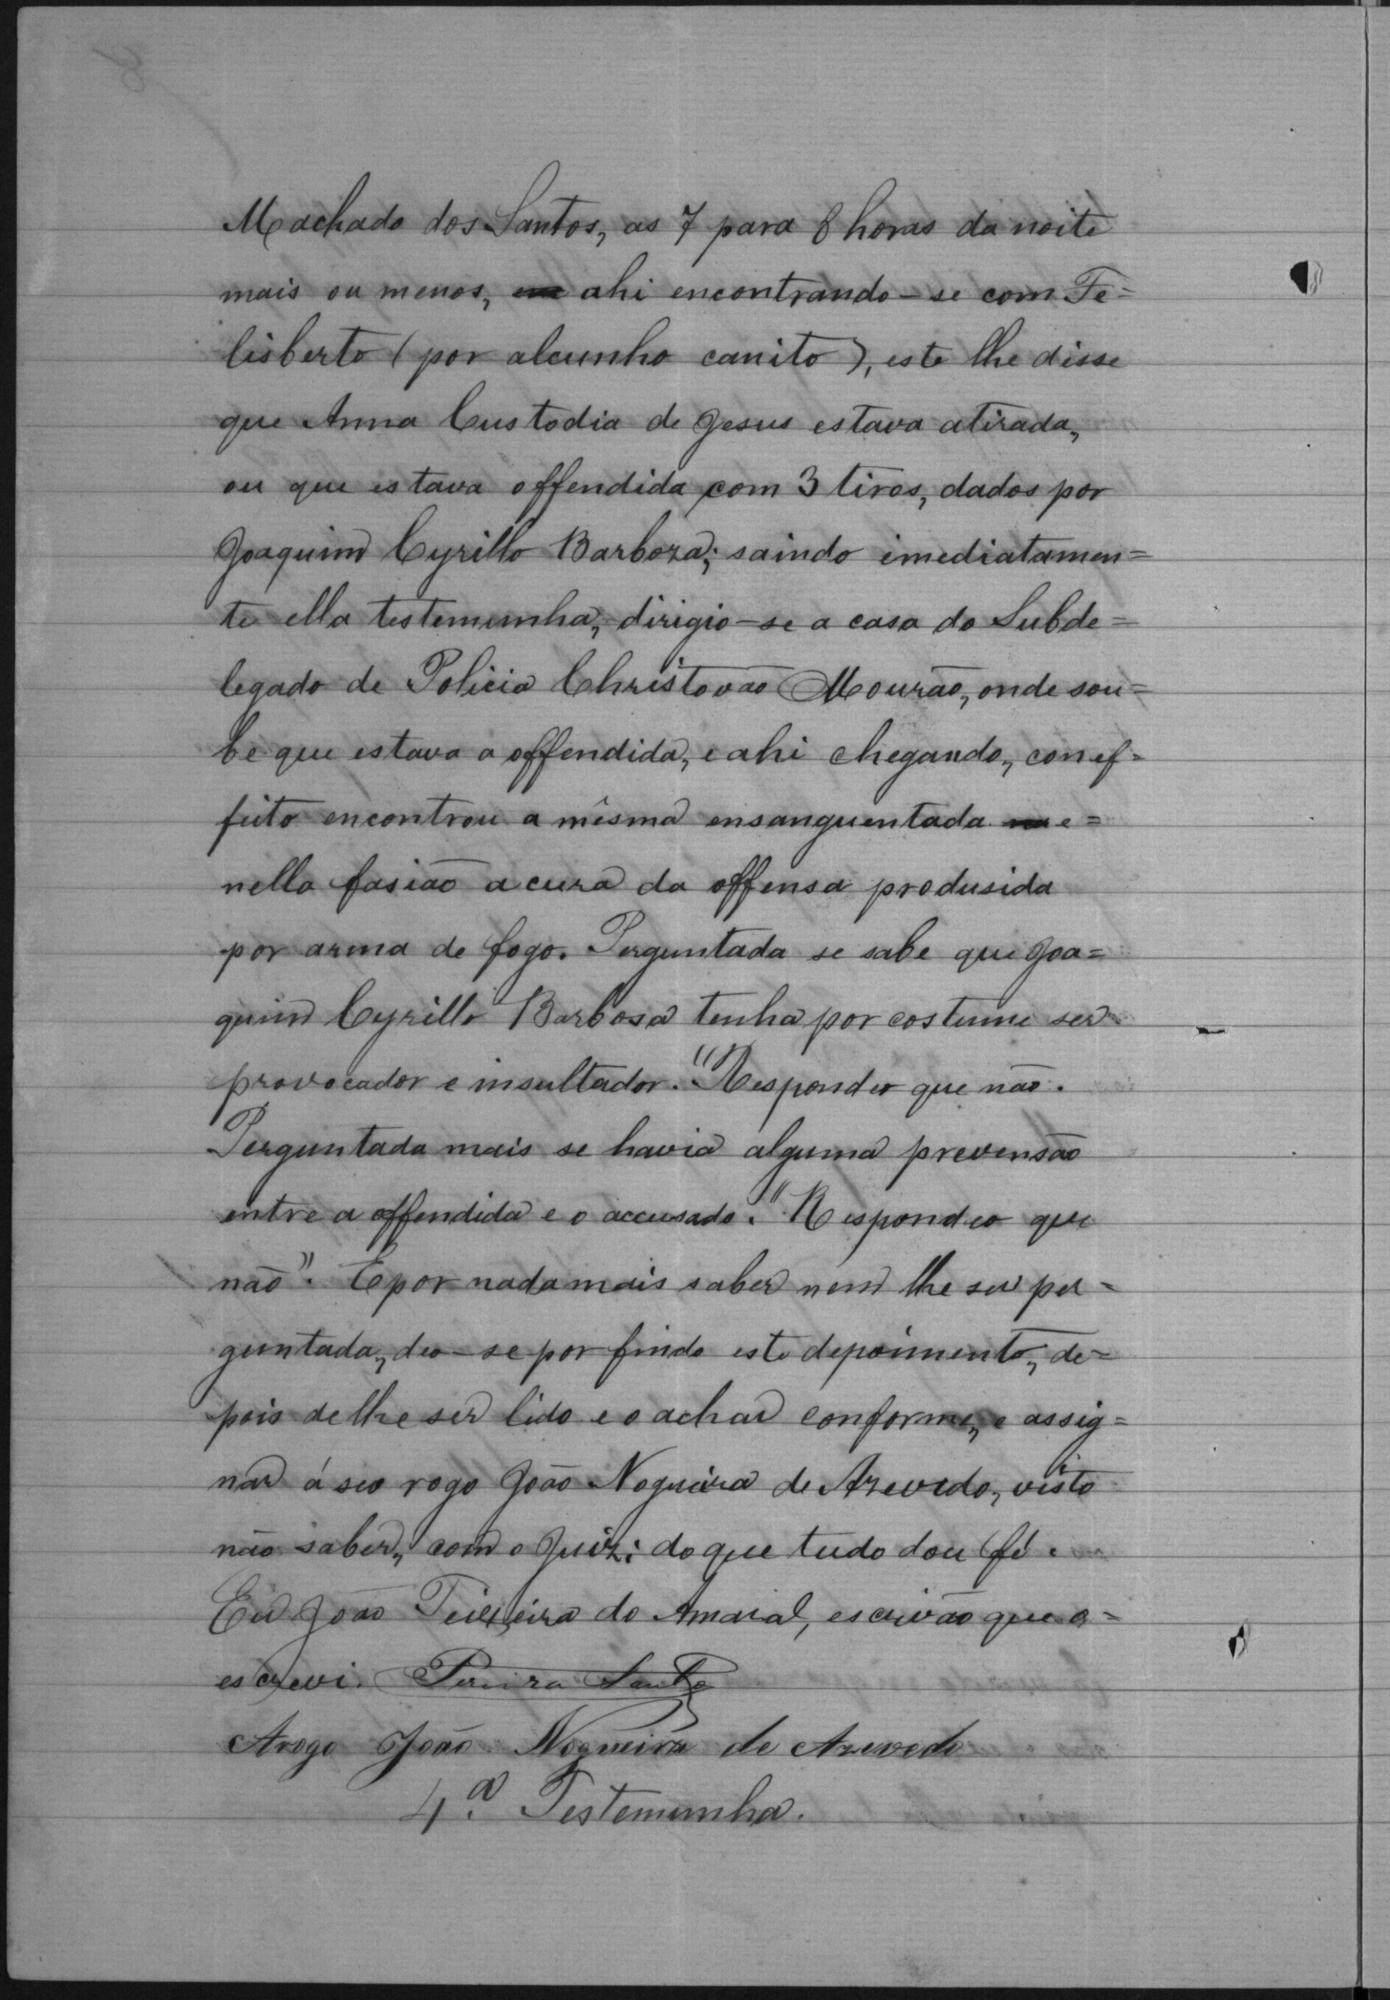 Machado dos Santos, as 7 para 8 horas da noite
mais ou menos, ahi encontrando-se com Fe=
lisberto (por alcunho canito), este lhe disse
que Anna Custodia de Jesus estava atirada,
ou que estava offendida com 3 tiros, dados por
Joaquim Cyrillo Barboza; saindo imediatamen=
te ella testemunha, dirigio-se a casa do Subde=
legado de Policia Christovão Mourão, onde sou=
be que estava a offendida, e ahi chegando, con ef=
feito encontrou a mesma ensanguentada e=
nella fasião a cura da offensa produsida
por arma de fogo. Perguntada se sabe que Joa=
quim Cyrillo Barbosa tenha por costume ser
provocador e insultador. "Respondeo que não.
Perguntada mais se havia alguma prevensão
entre a offendida e o accusado. "Respondeo que
não". E por nada mais saber nem lhe ser per=
guntada, deo-se por findo este depoimento, de=
pois de lhe ser lido e o achar conforme, e assig=
nar á seo rogo João Nogueira de Azevedo, visto
não saber, com o Juiz; do que tudo dou fé.
Eu João Teixeira do Amaral, escrivão que o=
escrevi. Pereira Santos
Arogo João Nogueira de Azevedo
4.ª Testemunha.